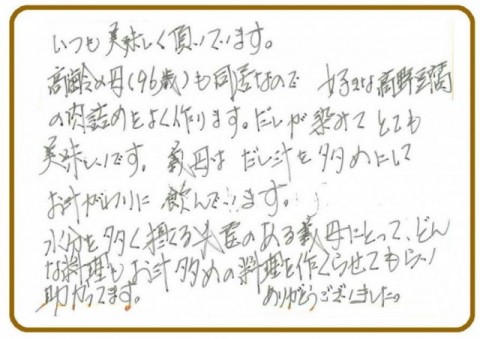 いつも美味しく頂いています。
高齢の母(96歳)も同居なので 好きな高野豆腐
の肉詰めをよく作ります。だしが染みてとても
美味しいです。義母は だし汁を多めにして
お汁がわりに 飲んでいます。
水分を多く摂る必要のある義母にとって、どん
な料理もお汁多めの料理を作くらせてもらい
助かってます。 ありがとうございました。